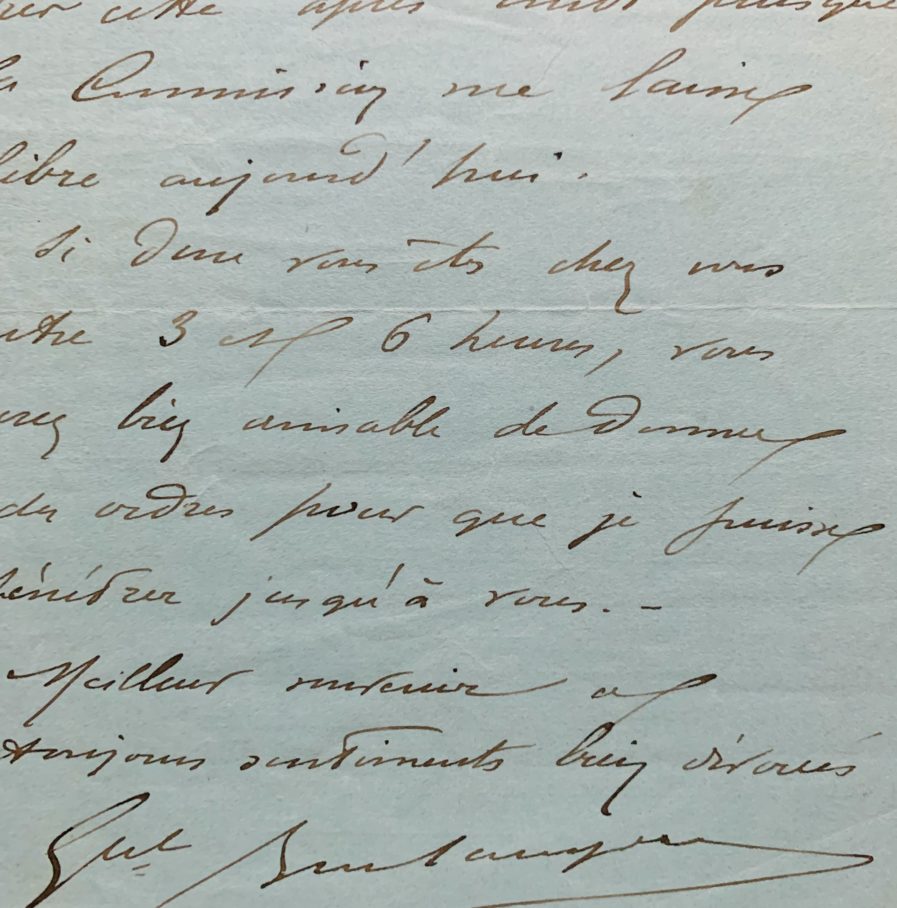 cette après midi puisque
la Commission me laisse
libre aujourd'hui.
Si donc vous êtes chez vous
entre 3 et 6 heures, vous
serez bien aimable de donner
des ordres pour que je puisse
pénétrer jusqu'à vous. –
Meilleur souvenir et
toujours sentiments bien dévoués
Gal Boulanger